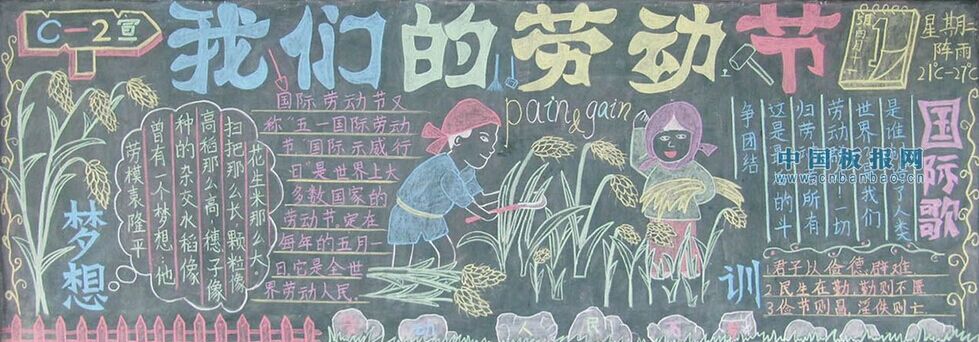 C-2宣
我们的劳动节
5月
1
星期一
阵雨
21°C-27°C
国际劳动节又
称“五一国际劳动
节”国际示威行
日”是世界上大
多数国家的
劳动节。定在
每年的五月一
日,它是全世
界劳动人民
pain & gain
梦想
劳模袁隆平
曾有一个梦想,他
种的杂交水稻像
高稻那么高,穗子像
扫把那么长,颗粒像
花生米那么大。
国际歌
是谁
了人类
世界
我们
劳动
一切
归劳
所有
这是
的斗
争团结
中国板报网
www.cnbanbao.cn
训
1.君子以俭德辟难
2.民生在勤,勤则不匮
3.俭节则昌,淫佚则亡.
人民